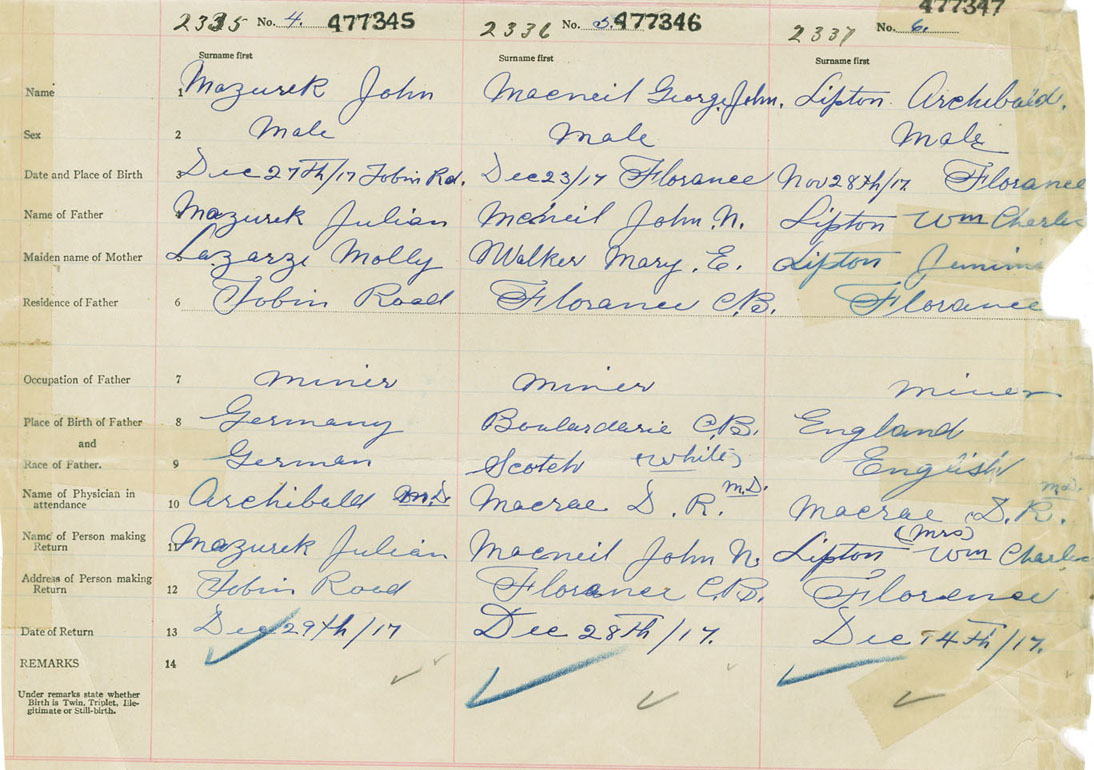 2335 No. 4. 477345 2336 No. 5. 477346 2337 No. 6. 477347
Surname first Surname first Surname first
Name 1 Mazurek John Macneil George John. Lipton Archibald.
Sex 2 Male Male Male
Date and Place of Birth 3 Dec 27Th/17 Tobin Rd. Dec 23/17 Florance Nov 28th/17. Florance
Name of Father Mazurek Julian Mcneil John N. Lipton Wm Charles
Maiden name of Mother Lazarzi Molly Walker Mary. E. Lipton Jemima
Residence of Father 6 Tobin Road Florance C.B. Florance
Occupation of Father 7 Miner Miner Miner
Place of Birth of Father 8 Germany Boulardarie C.B. England
and
Race of Father. 9 German Scotch (White) English
Name of Physician in attendance 10 Archibald M.D. Macrae D. R. M.D. Macrae D. R. M.D.
Name of Person making Return 11 Mazurek Julian Macneil John N. Lipton (Mrs) Wm Charles
Address of Person making Return 12 Tobin Road Florance C.B. Florence
Date of Return 13 Dec 29th/17 Dec 28Th/17. Dec 14Th/17.
REMARKS 14
Under remarks state whether
Birth is Twin, Triplet, Ille-
gitimate or Still-birth.